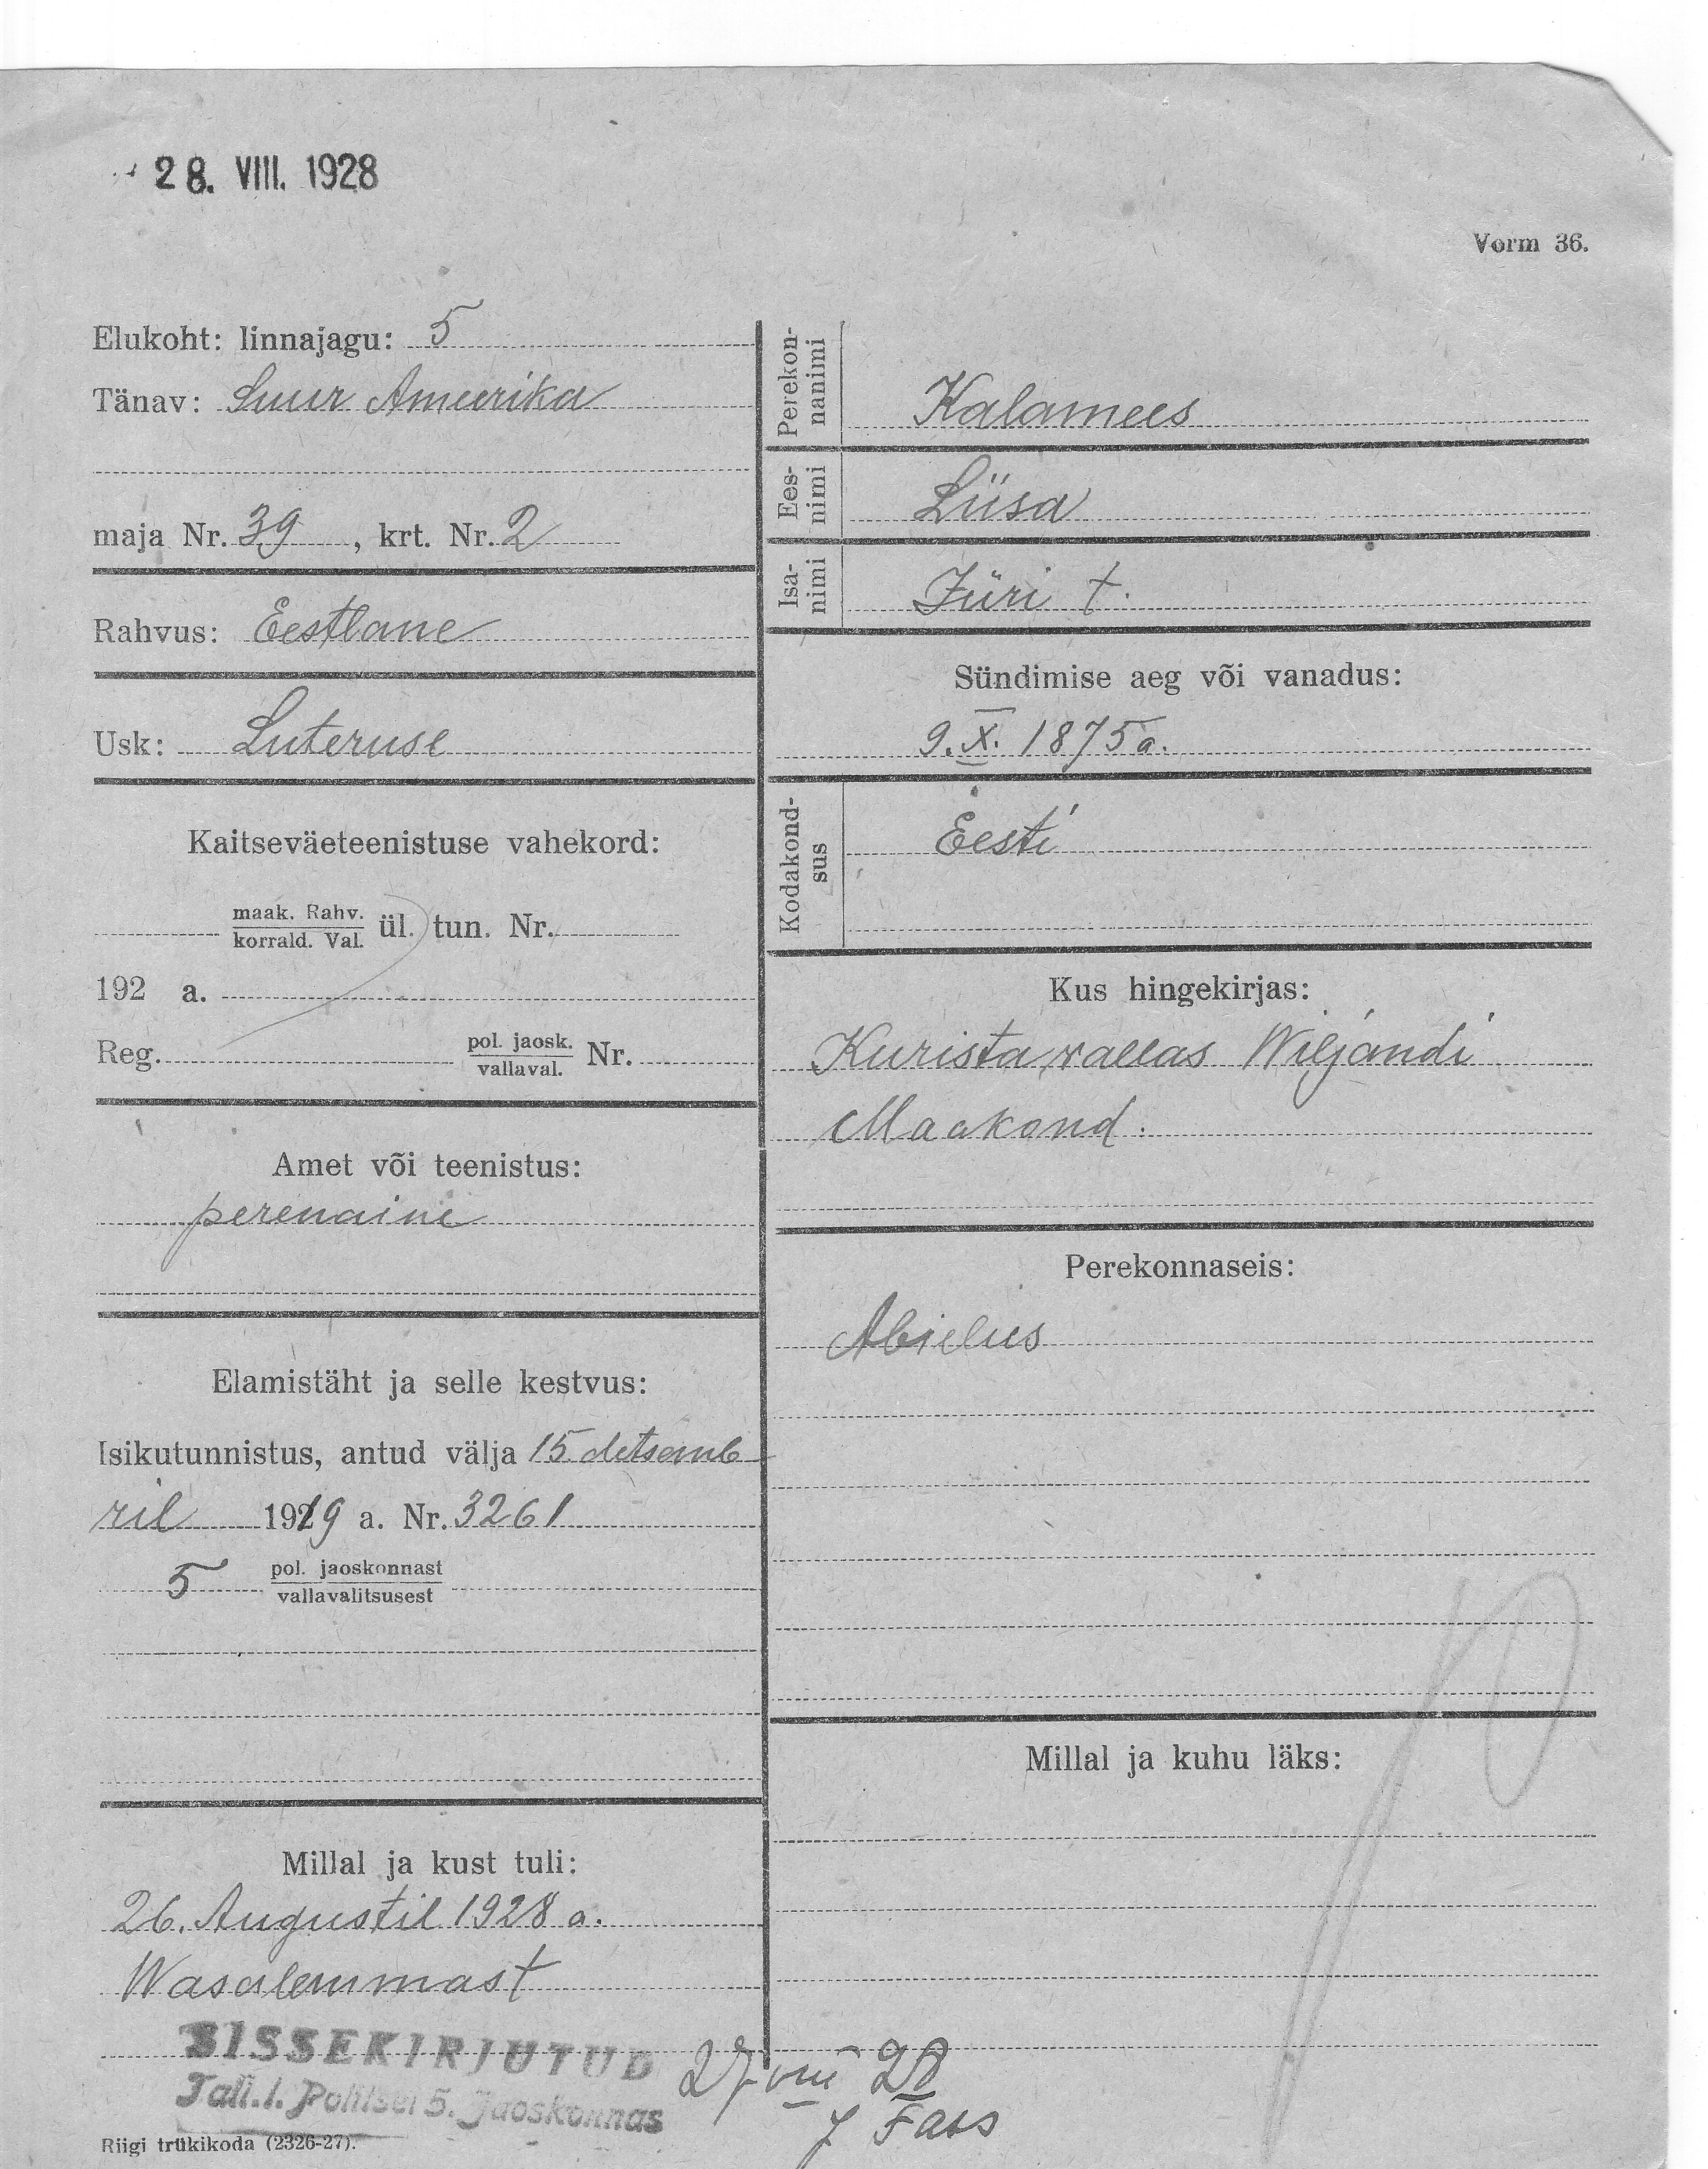 28. VIII. 1928
Vorm 36.
Elukoht: linnajagu: 5
Tänav: Suur Ameerika
maja Nr. 39, krt. Nr. 2
Rahvus: Eestlane
Usk: Luteruse
Kaitseväeteenistuse vahekord:
maak. Rahv.
korrald. Val. ül. tun. Nr.
192 a.
Reg. pol. jaosk. Nr.
vallaval.
Amet või teenistus:
perenaine
Elamistäht ja selle kestvus:
Isikutunnistus, antud välja 15 detsemb
ril 1919 a. Nr. 3261
5 pol. jaoskonnast
vallavalitsusest
Millal ja kust tuli:
26. Augustil 1928 a.
Wasalemmast
SISSEKIRJUTUD
Tall. l. Politsei 5. Jaoskonnas
Riigi trükikoda (2326-27).
Perekon-
nanimi
Kalamees
Ees-
nimi
Liisa
Isa-
nimi
Jüri t.
Sündimise aeg või vanadus:
9. X. 1875 a.
Kodakond-
sus
Eesti
Kus hingekirjas:
Kurista vallas Wiljandi
Maakond.
Perekonnaseis:
Abielus
Millal ja kuhu läks:
27 VIII 28